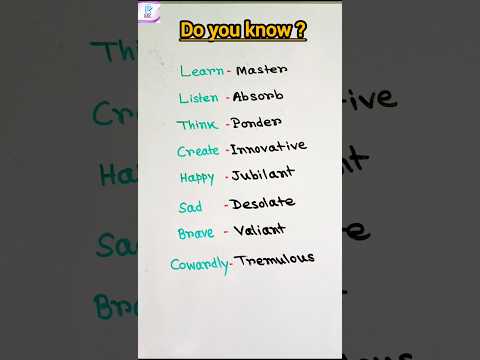 Do you know ?
Learn - Master
Listen - Absorb
Think - Ponder
Create - Innovative
Happy - Jubilant
Sad - Desolate
Brave - Valiant
Cowardly - Tremulous